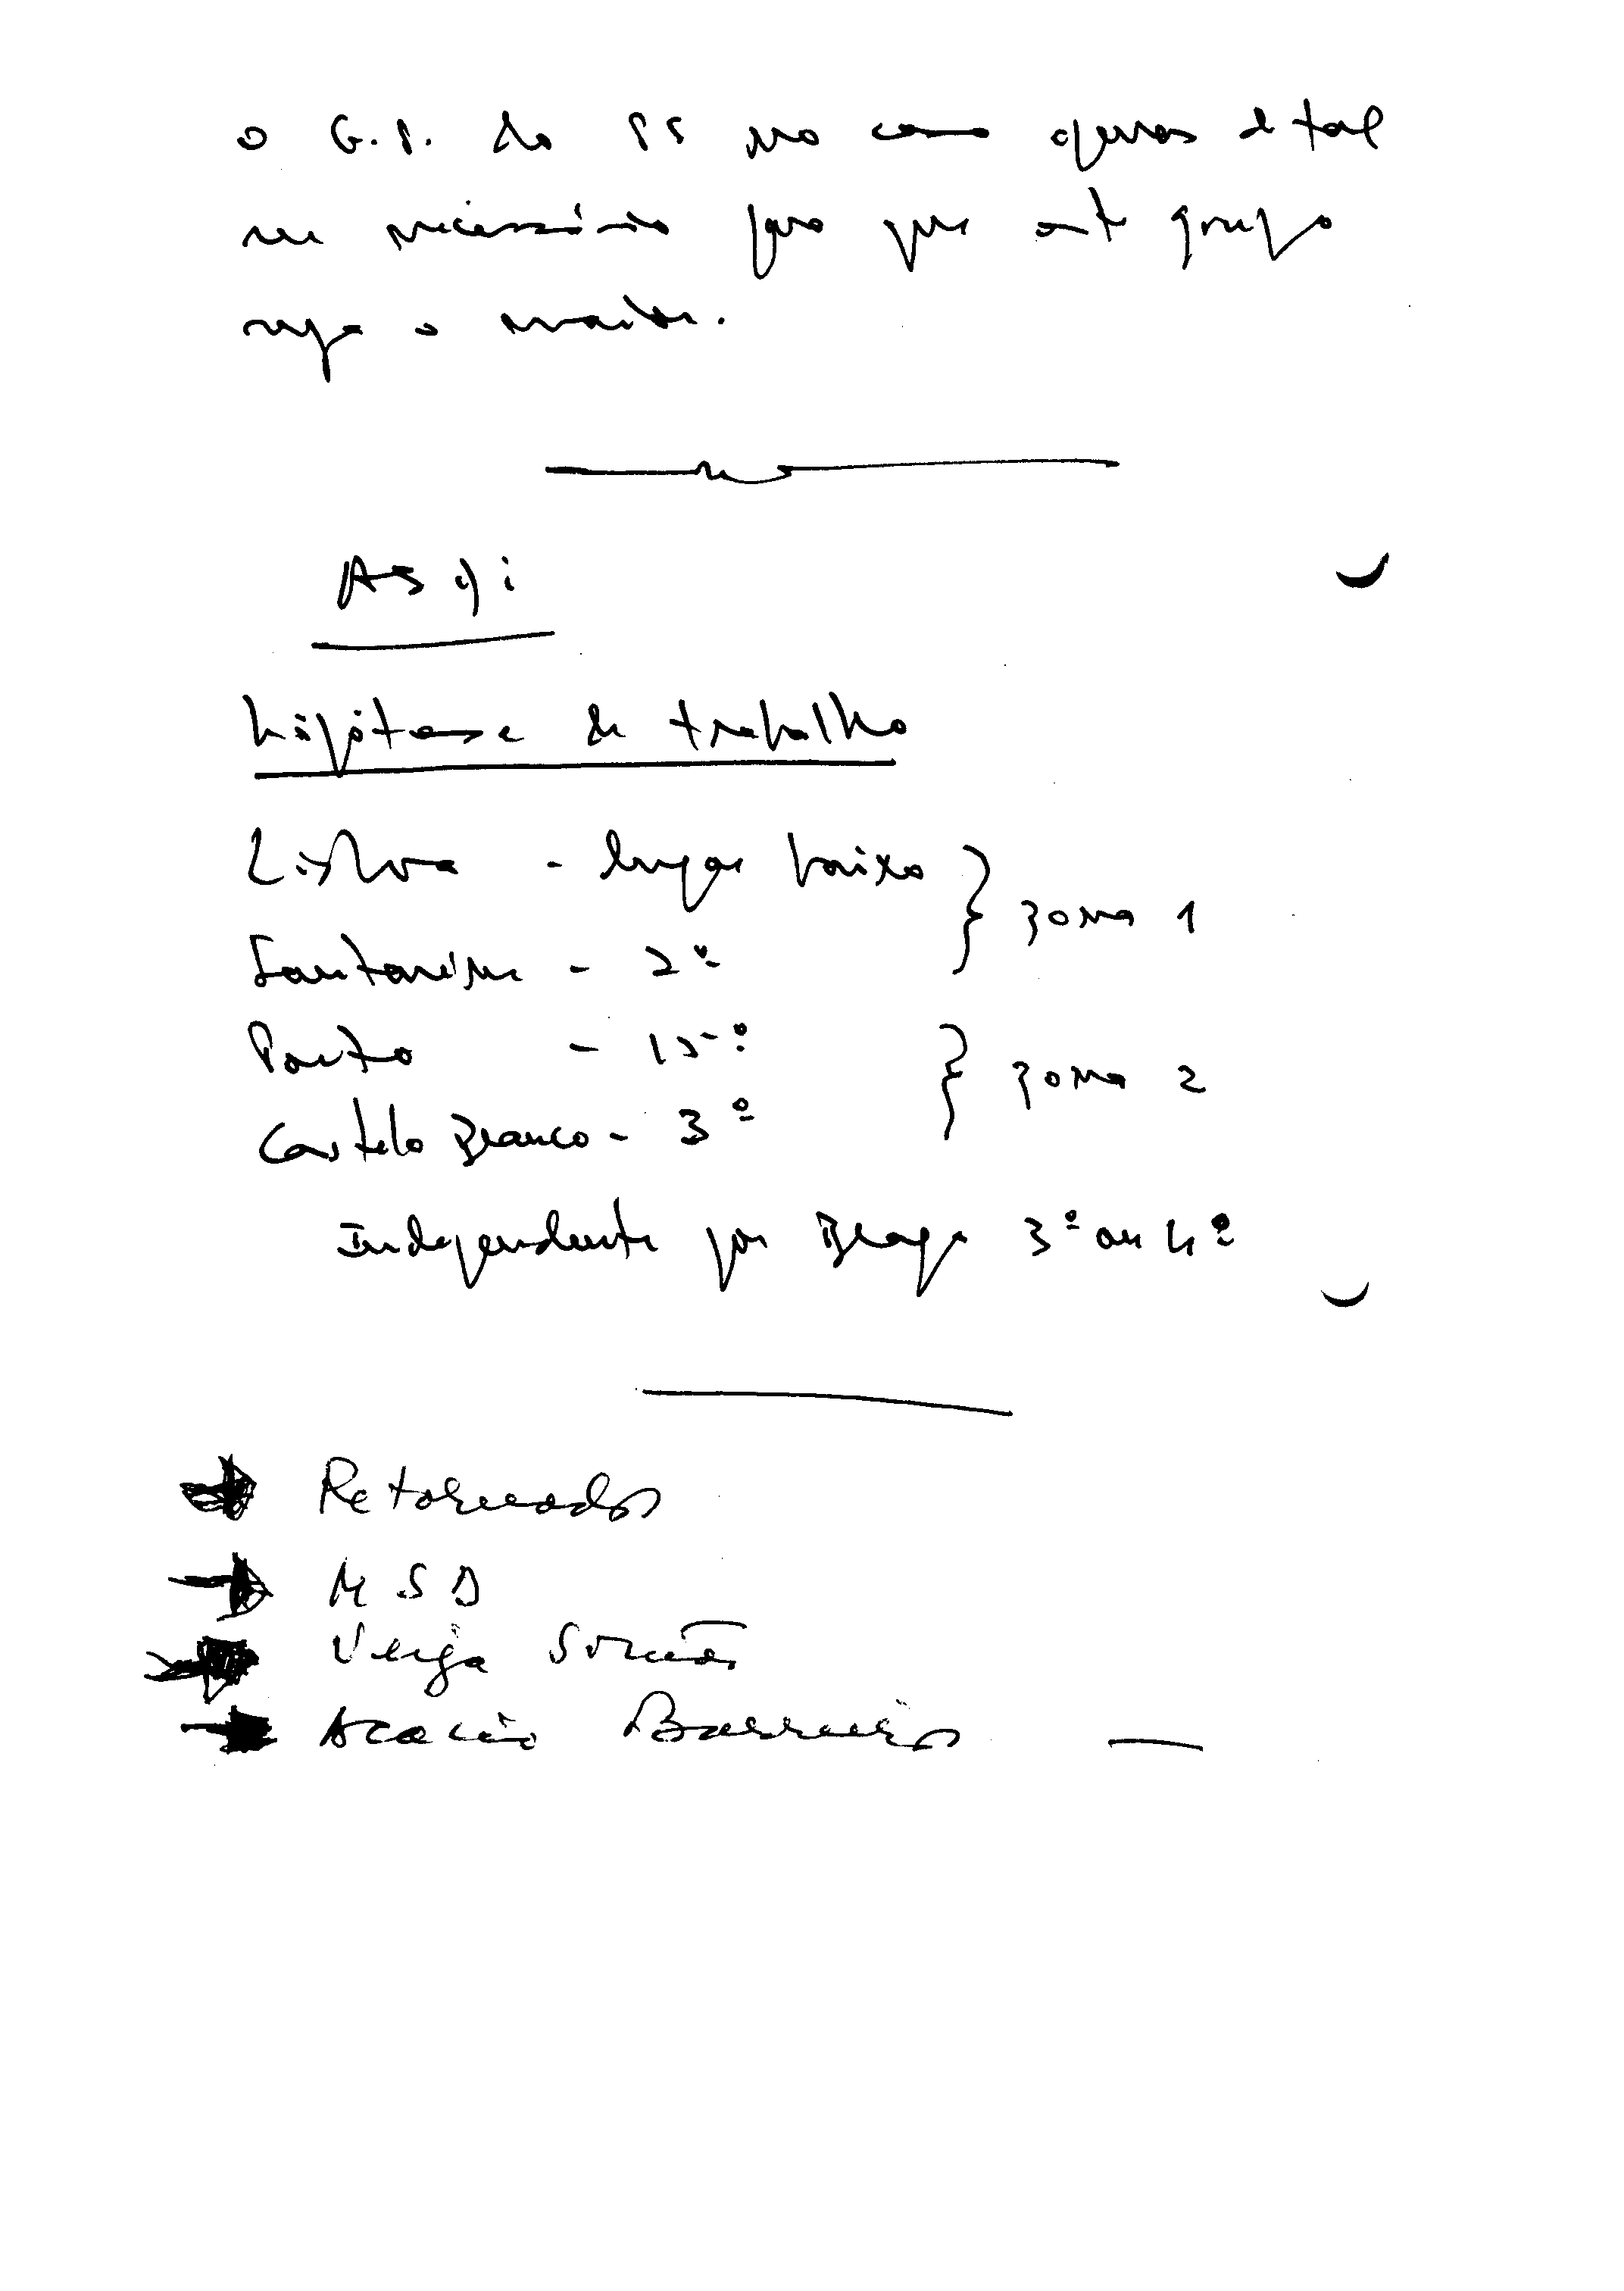 o G.P. do PS no caso apenas de tal
ser necessário para que este grupo
seja o maior.
ASDI
hipótese de trabalho
Lisboa - lugar baixo } zona 1
Santarém - 2º
Porto - 15º } zona 2
Castelo Branco - 3º
Independente por Braga 3º ou 4º
Retornados
MSD
Veiga Simão
Acácio Barreiros —